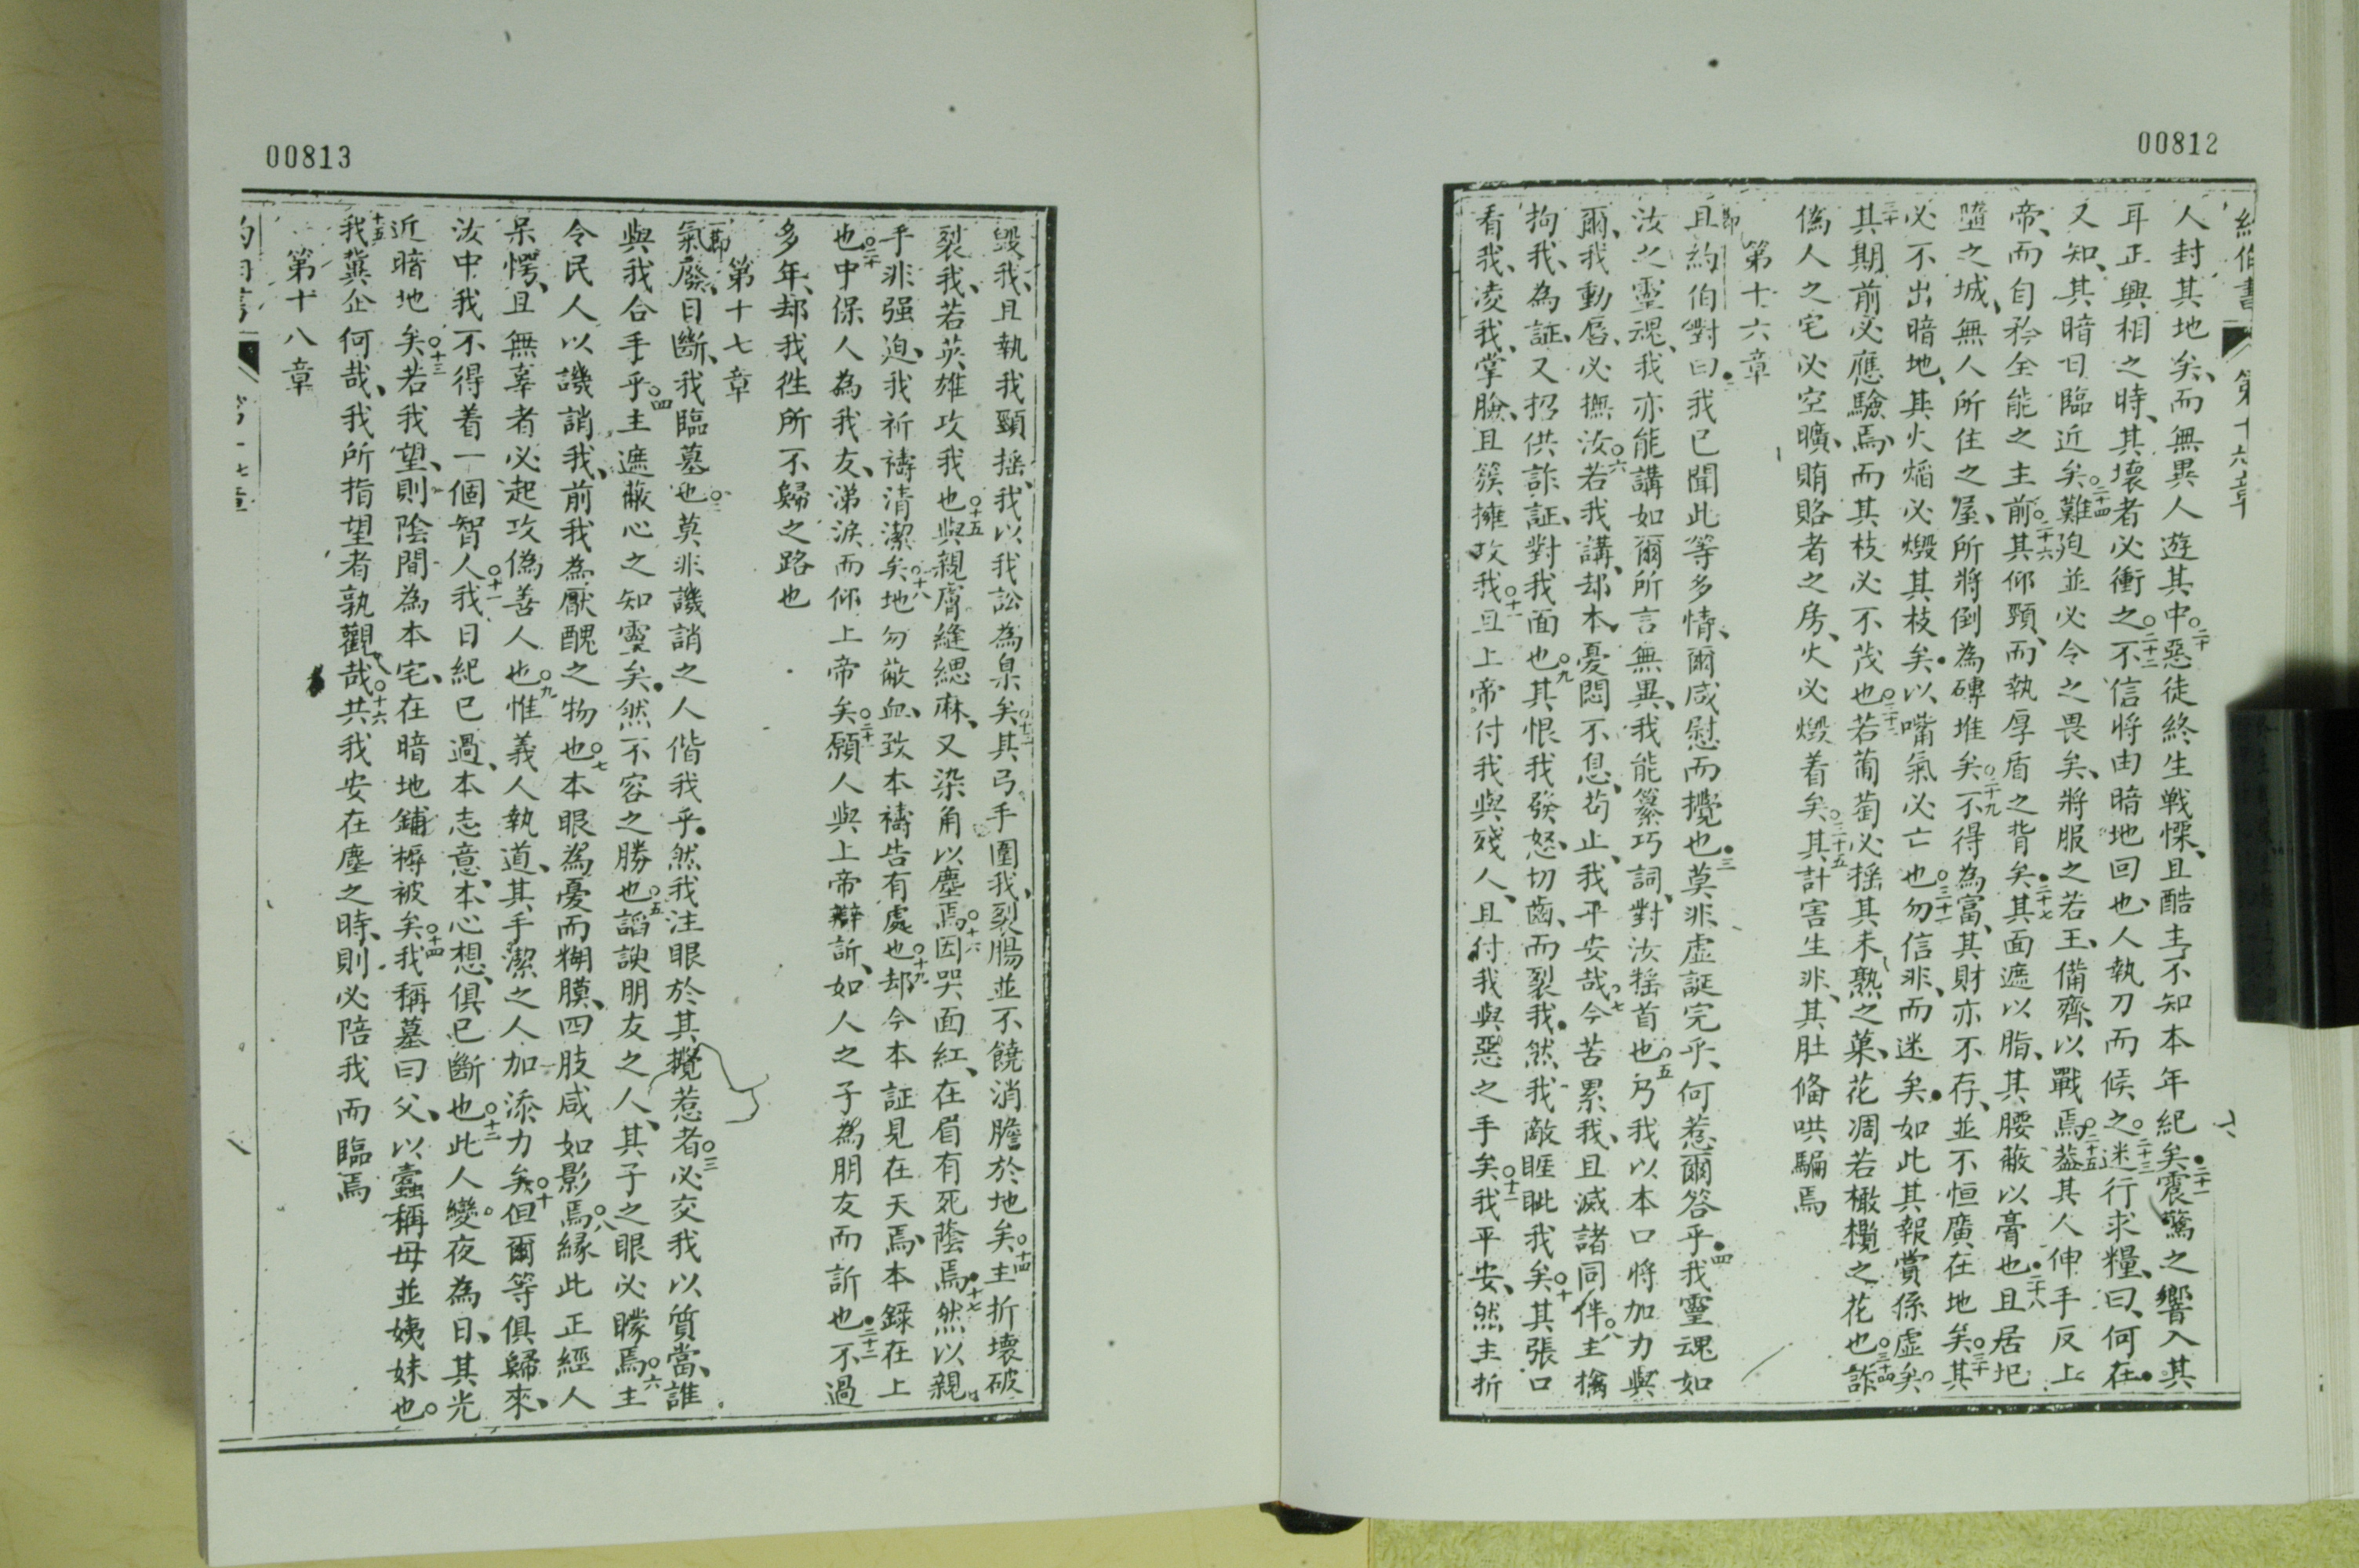 00812
約伯書 第十六章
人封其地矣、而無異人遊其中○二十惡徒終生戰慄、且酷主不知本年紀矣●二十一震驚之響入其
耳正興相之時、其壞者必衝之○二十二不信將由暗地回也、人執刀而候之○二十三迷行求糧、曰、何在●
又知、其暗日臨近矣○二十四難迫並必令之畏矣、將服之若王、備齊以戰焉○二十五葢其人伸手反上
帝、而自矜全能之主前○二十六其仰頸、而執厚盾之背矣●二十七其面遮以脂、其腰蔽以膏也●二十八且居圯
墮之城、無人所住之屋、所將倒為磚堆矣○二十九不得為富、其財亦不存、並不恒廣在地矣○三十其
必不出暗地、其火熖必燬其枝矣●以嘴氣必亡也○三十一勿信非、而迷矣●如此其報賞係虛矣○
三十二其期前必應驗焉、而其枝必不茂也○三十三若葡萄必搖其未熟之菓、花凋若橄欖之花也○三十四詐
偽人之宅必空曠、賄賂者之房、火必燬着矣○三十五其計害生非、其肚偹哄騙焉
第十六章
一節且約伯對曰●二我已聞此等多情、爾咸慰而攪也●三莫非虛誕完乎、何惹爾答乎●四我靈魂如
汝之靈魂、我亦能講如爾所言無異、我能纂巧詞、對汝搖首也○五乃我以本口將加力與
爾、我動唇、必撫汝○六若我講、却本憂悶不息、茍止、我平安哉○七今苦累我、且滅諸同伴○八主擒
拘我、為証、又招供詐証、對我面也○九其恨我發怒、切齒、而裂我●然我敵睚眦我矣○十其張口
看我、凌我、掌臉、且簇擁攻我○十一且上帝付我與殘人、且付我與惡之手矣○十二我平安、然主折
00813
毀我、且執我頸搖、我以我訟為臬矣○十三其弓手圍我、裂腸並不饒、消膽於地矣○十四主折壞破
裂我、若英雄攻我也○十五與親膚縫緦麻、又染角以塵焉○十六因哭面紅、在眉有死蔭焉●十七然以親
手非强迫、我祈禱清潔矣○十八地勿蔽血、致本禱告有處也○十九却今本証見在天焉、本錄在上
也○二十中保人為我友、涕淚而仰上帝矣○二十一願人與上帝辯訴、如人之子為朋友而訴也●二十二不過
多年、却我徃所不歸之路也
第十七章
一節氣廢、日斷、我臨墓也○二莫非譏誚之人偕我乎●然我注眼於其攪惹者○三必交我以質當、誰
與我合手乎○四主遮蔽心之知靈矣●然不容之勝也○五謟諛朋友之人、其子之眼必矇焉○六主
令民人以譏誚我、前我為厭醜之物也○七本眼為憂而糊膜、四肢咸如影焉○八緣此正經人
呆愕、且無辜者必起攻偽善人也○九惟義人執道、其手潔之人加添力矣○十但爾等俱歸來、
汝中我不得着一個智人○十一我日紀已過、本志意、本心想、俱已斷也○十二此人變夜為日、其光
近暗地矣○十三若我望、則陰間為本宅、在暗地鋪褥被矣○十四我稱墓曰父、以蠧稱母並姨妹也○
十五我兾企何哉、我所指望者孰觀哉○十六共我安在塵之時、則必陪我而臨焉
第十八章
約伯書 第十七章